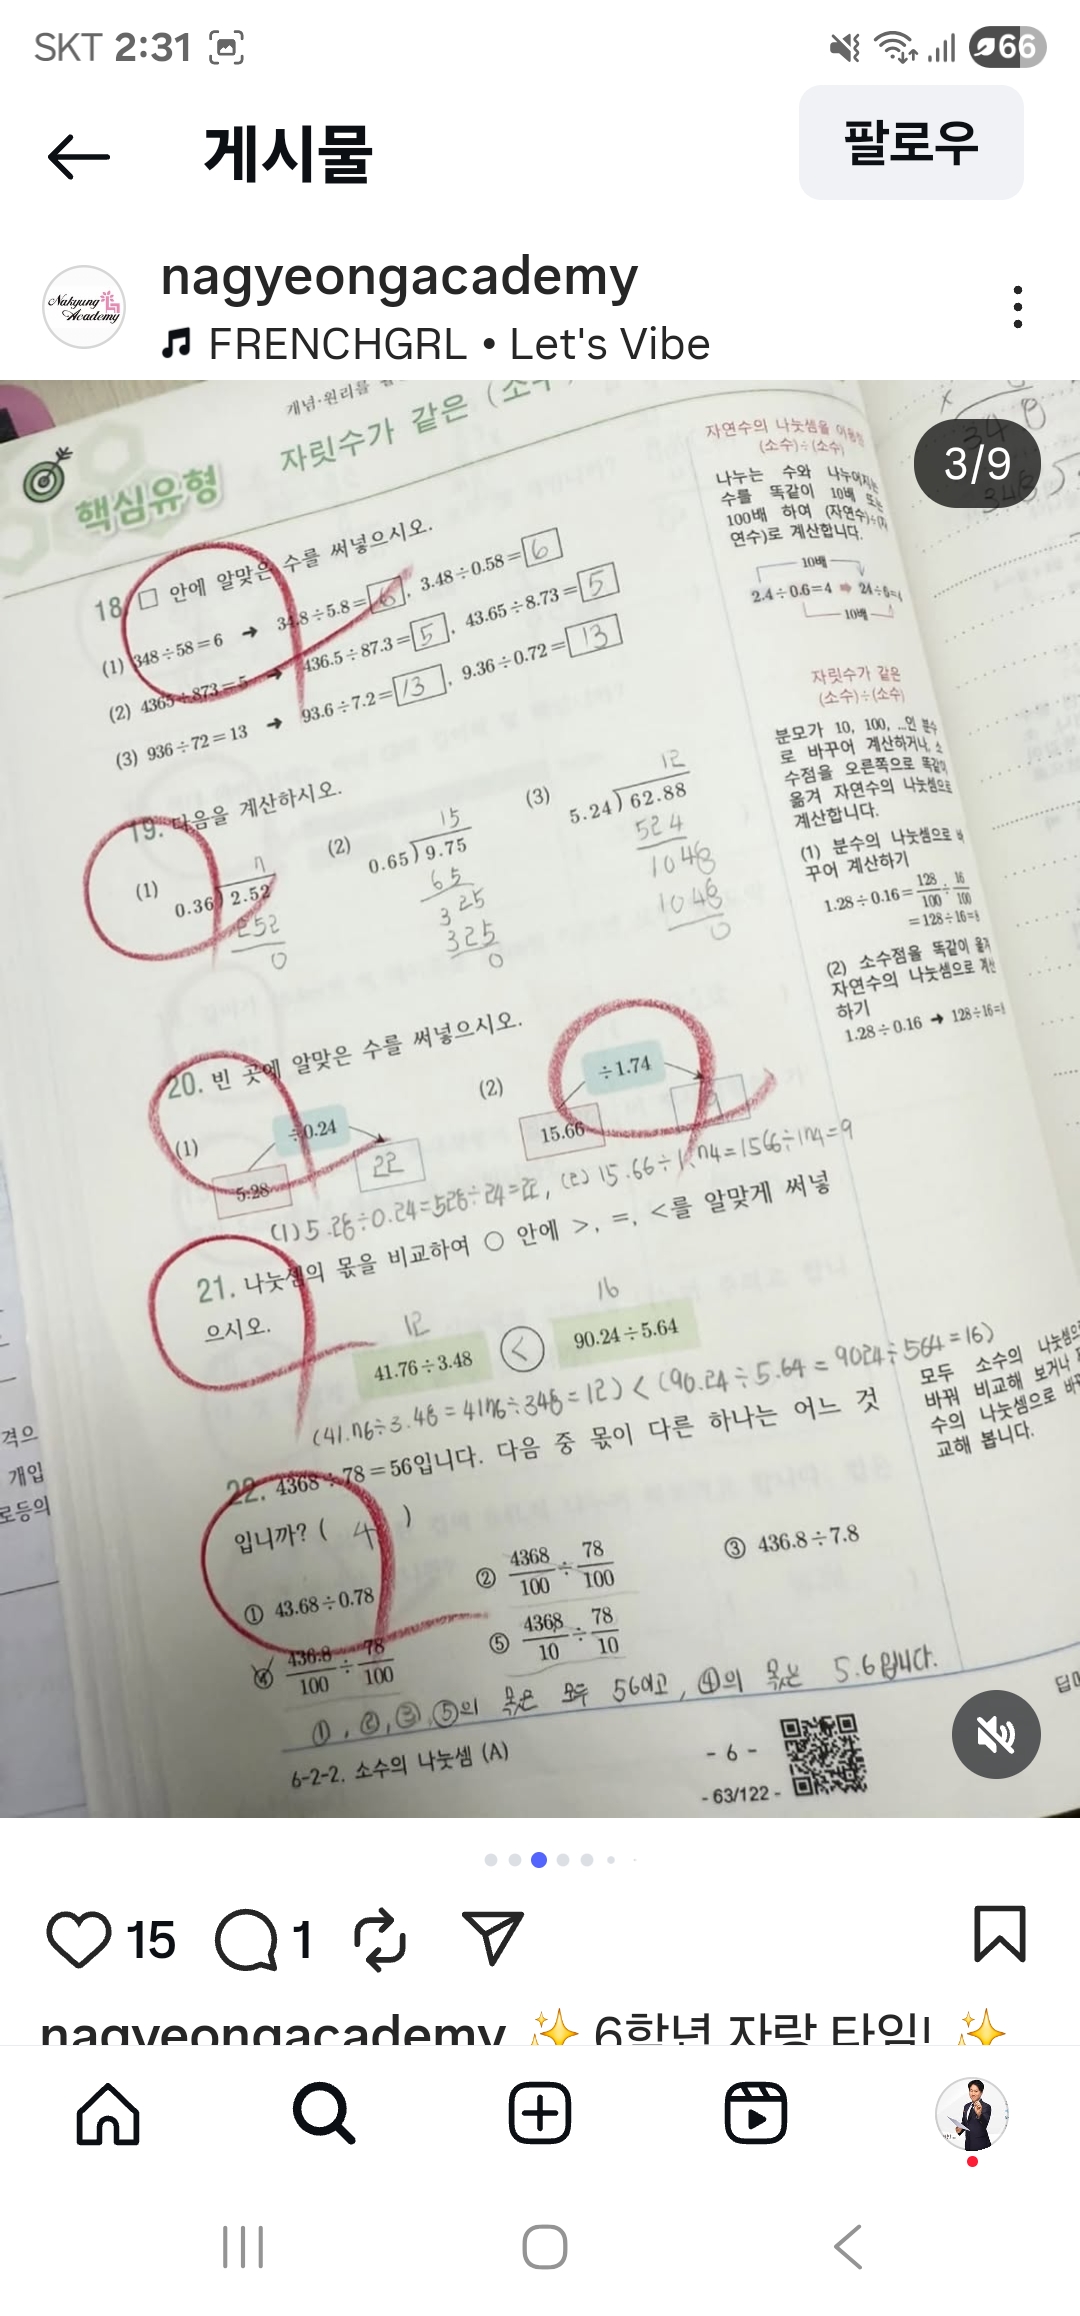 SKT 2:31
66
게시물
팔로우
nagyeongacademy
FRENCHGRL • Let's Vibe
3/9
Nakyung Academy
개념·원리를
핵심유형
자릿수가 같은 (소수
18. □ 안에 알맞은 수를 써넣으시오.
(1) 348÷58=6 ➜ 34.8÷5.8=6, 3.48÷0.58=6
(2) 4365÷873=5 ➜ 436.5÷87.3=5, 43.65÷8.73=5
(3) 936÷72=13 ➜ 93.6÷7.2=13, 9.36÷0.72=13
19. 다음을 계산하시오.
(1) 0.36)2.52
7
252
0
(2) 0.65)9.75
15
65
325
325
0
(3) 5.24)62.88
12
524
1048
1048
0
20. 빈 곳에 알맞은 수를 써넣으시오.
(1) ÷0.24
5.28
22
(2) ÷1.74
15.66
(1) 5.28÷0.24=528÷24=22, (2) 15.66÷1.74=1566÷174=9
21. 나눗셈의 몫을 비교하여 ○ 안에 >, =, <를 알맞게 써넣
으시오.
12
16
41.76÷3.48 < 90.24÷5.64
(41.76÷3.48=4176÷348=12) < (90.24÷5.64=9024÷564=16)
22. 4368÷78=56입니다. 다음 중 몫이 다른 하나는 어느 것
입니까? ( 4 )
① 43.68÷0.78
② 4368/100÷78/100
③ 436.8÷7.8
④ 436.8/100÷78/100
⑤ 4368/10÷78/10
①, ②, ③, ⑤의 몫은 모두 56이고, ④의 몫은 5.6입니다.
6-2-2. 소수의 나눗셈 (A)
- 6 -
- 63/122 -
자연수의 나눗셈을 이용한
(소수)÷(소수)
나누는 수와 나누어지는
수를 똑같이 10배 또는
100배 하여 (자연수)÷(자
연수)로 계산합니다.
10배
2.4÷0.6=4 ➡ 24÷6=4
10배
자릿수가 같은
(소수)÷(소수)
분모가 10, 100, …인 분수
로 바꾸어 계산하거나, 소
수점을 오른쪽으로 똑같이
옮겨 자연수의 나눗셈으로
계산합니다.
(1) 분수의 나눗셈으로 바
꾸어 계산하기
1.28÷0.16=128/100÷16/100
=128÷16=8
(2) 소수점을 똑같이 옮겨
자연수의 나눗셈으로 계산
하기
1.28÷0.16 ➜ 128÷16=8
모두 소수의 나눗셈으
바꿔 비교해 보거나
수의 나눗셈으로 바꾸
교해 봅니다.
격으
개입
로등의
348
15
1
nagyeongacademy ✨ 6학년 자랑 타임! ✨